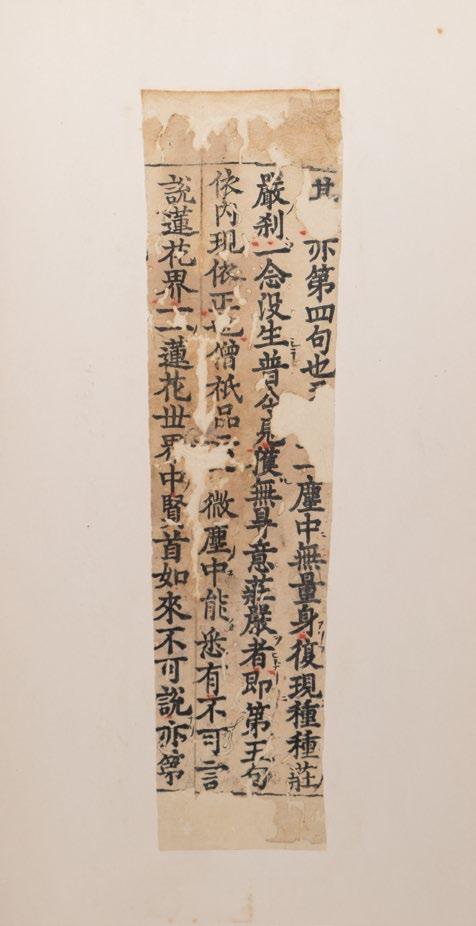 亦第四句也 一塵中無量身復現種種莊
嚴刹一念没生普令見獲無㝵意莊嚴者即第王句
依内現依正也僧祇品云一微塵中能悉有不可言
說蓮花界一一蓮花世界中賢首如來不可說亦第